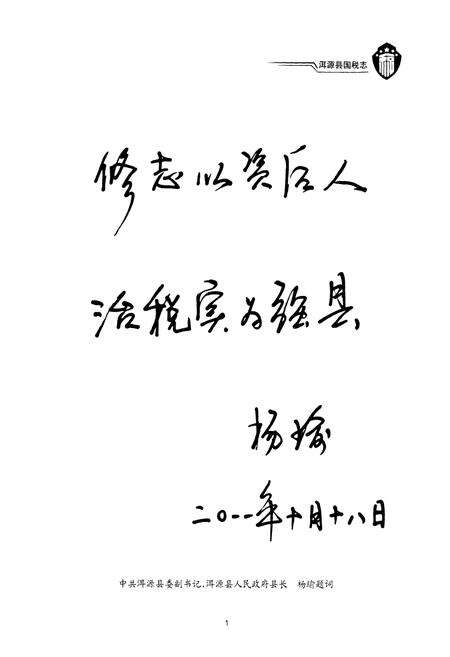 洱源县国税志
修志以资后人
治税实为强县
杨瑜
二〇一一年十月十八日
中共洱源县委副书记,洱源县人民政府县长 杨瑜题词
1